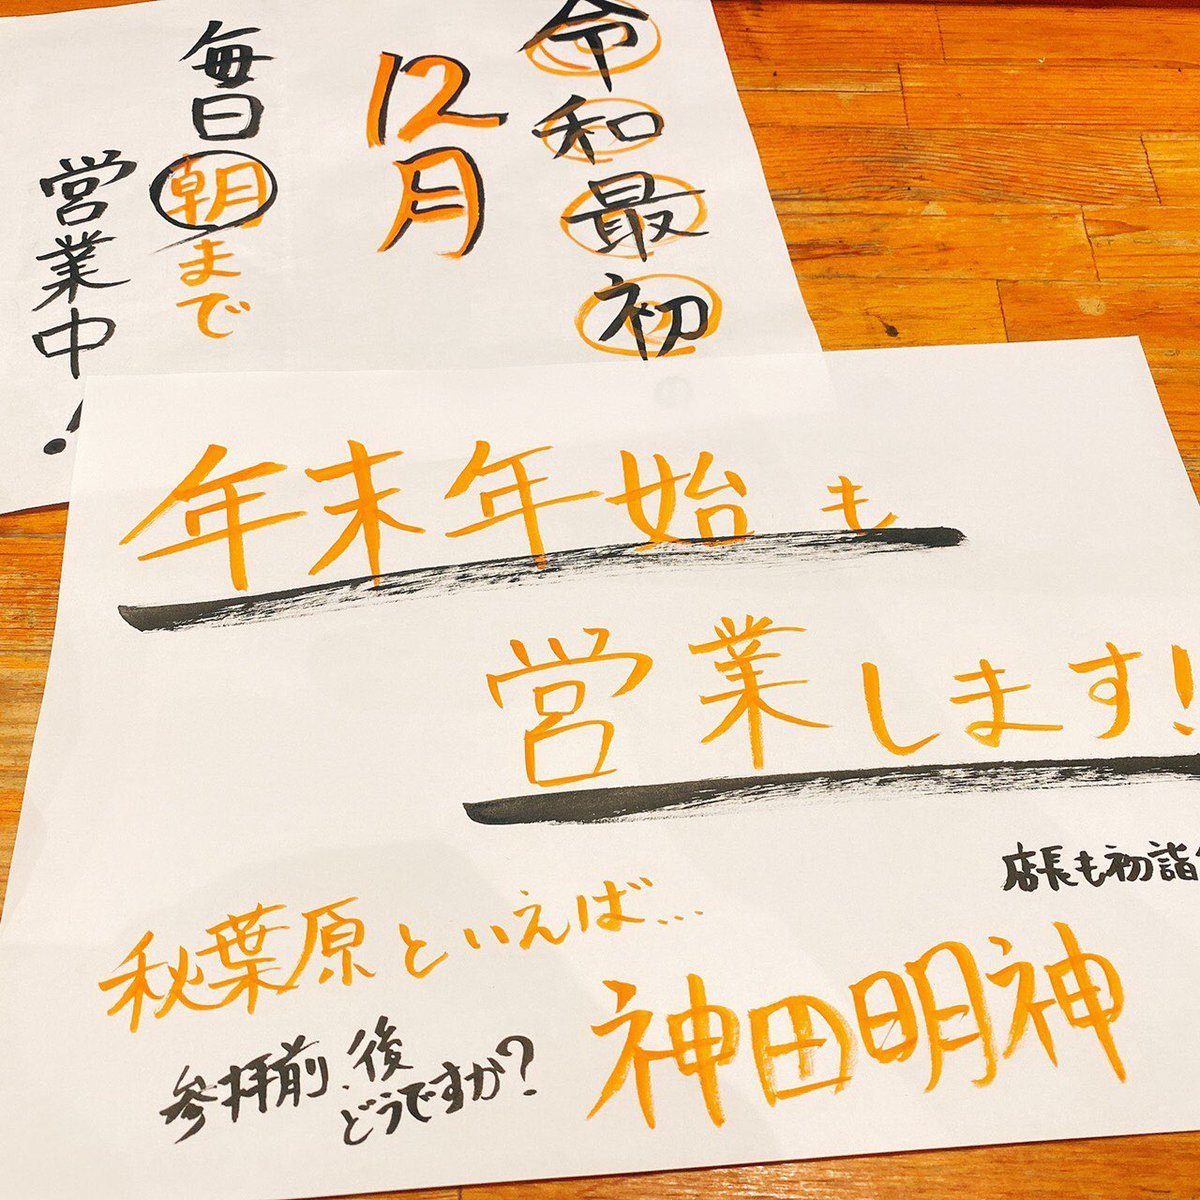 令和最初
12月
毎日朝まで
営業中!
年末年始も
営業します!
店長も初詣
秋葉原といえば...
神田明神
参拝前、後
どうですか?